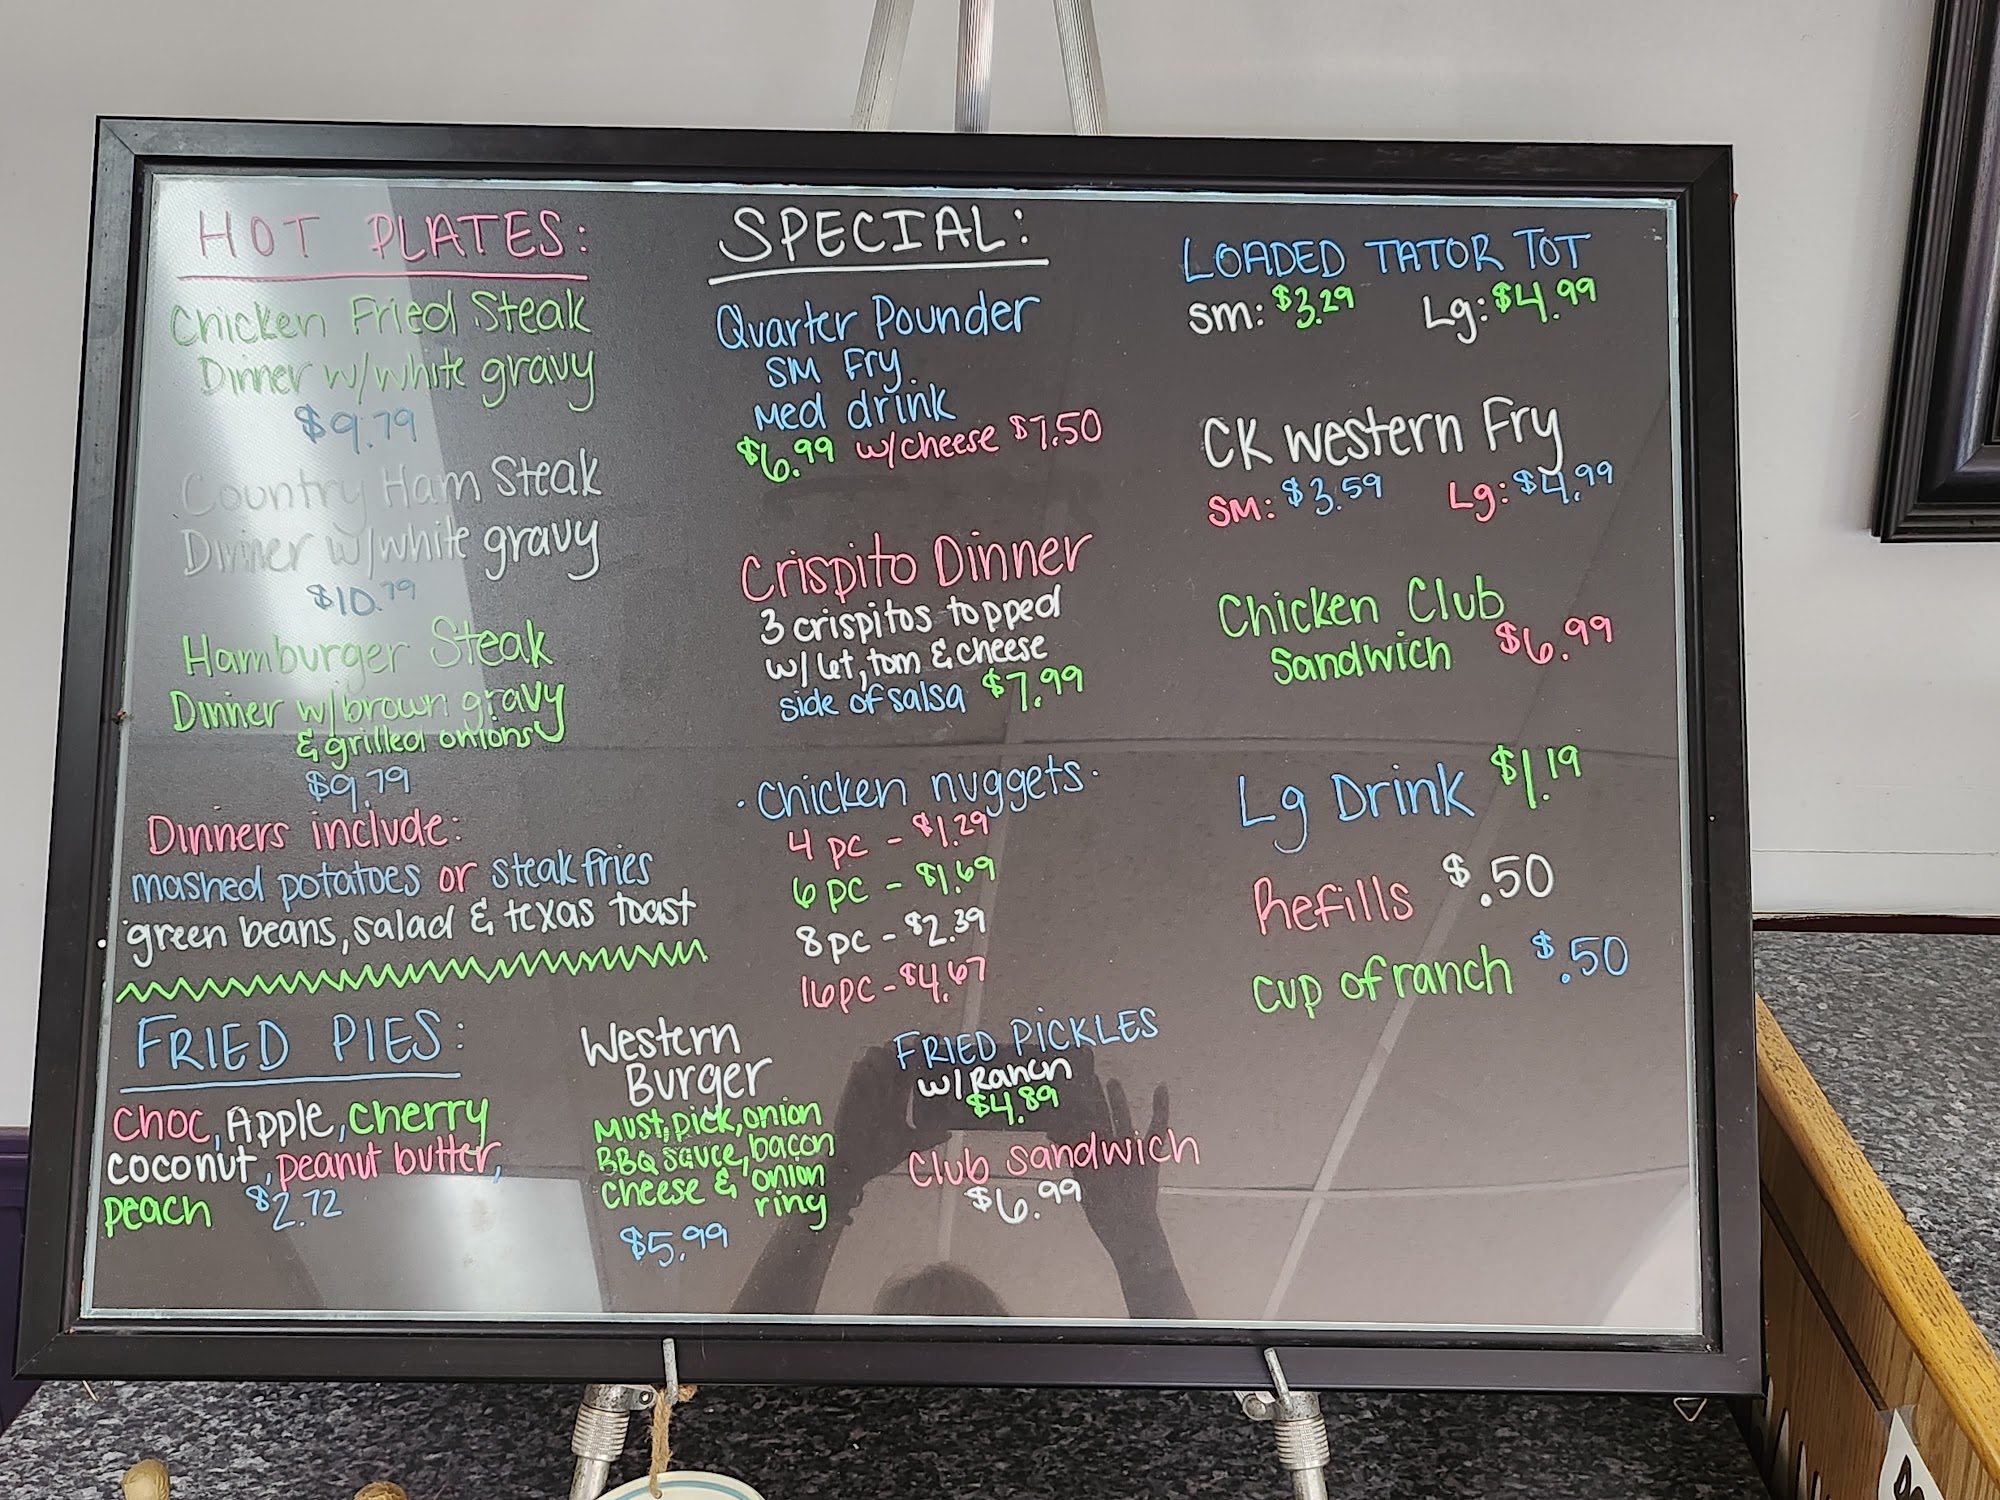 HOT PLATES:
Chicken Fried Steak
Dinner w/white gravy
$9.79
Country Ham Steak
Dinner w/white gravy
$10.79
Hamburger Steak
Dinner w/brown gravy
& grilled onions
$9.79
Dinners include:
mashed potatoes or steak fries
green beans, salad & texas toast
FRIED PIES:
Choc, Apple, Cherry
coconut, peanut butter,
peach $2.72
Western
Burger
Must, pick, onion
BBQ sauce, bacon
cheese & onion
ring
$5.99
SPECIAL:
Quarter Pounder
SM Fry
Med drink
$6.99 w/cheese $7.50
Crispito Dinner
3 crispitos topped
w/ let, tom & cheese
side of salsa $7.99
Chicken nuggets
4 pc - $1.29
6 pc - $1.69
8 pc - $2.39
16 pc - $4.67
FRIED PICKLES
w/ Ranch
$4.89
Club Sandwich
$6.99
LOADED TATOR TOT
Sm: $3.29 Lg: $4.99
CK Western Fry
SM: $3.59 Lg: $4.99
Chicken Club
Sandwich $6.99
Lg Drink $1.19
Refills $.50
cup of ranch $.50